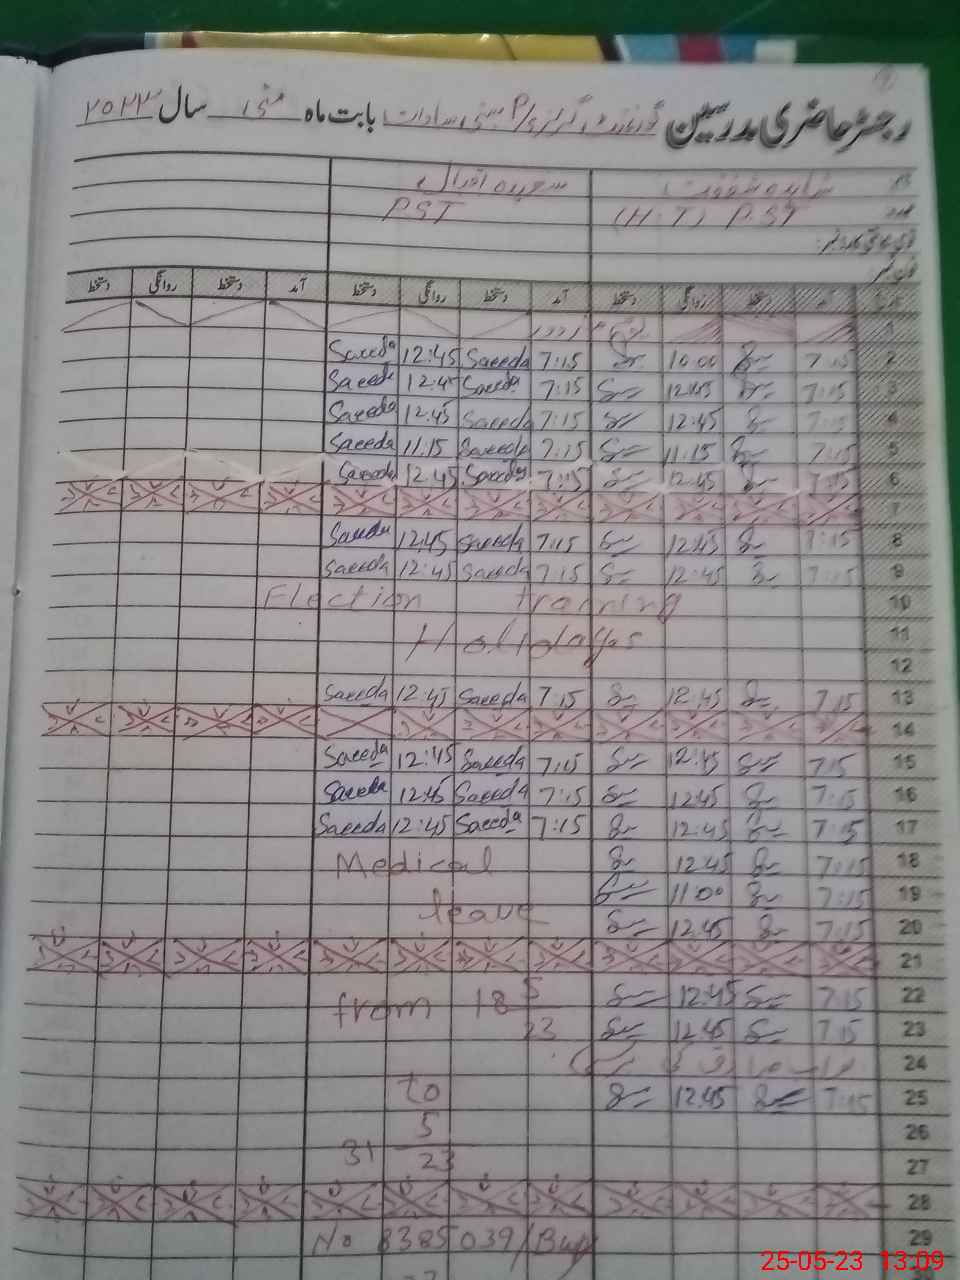 رجسٹر حاضری مدرسین گورنمنٹ گرلز P/ بستی سادات بابت ماہ مئی سال ۲۰۲۳
نام شاہدہ شفقت سعیدہ اقبال
عہدہ (H.T) P.ST PST
قومی شناختی کارڈ نمبر:
فون نمبر
تاریخ آمد دستخط روانگی دستخط آمد دستخط روانگی دستخط آمد دستخط روانگی دستخط
1
2 7:15 10:00 7:15 Saeeda 12:45 Saeeda
3 7:15 12:45 7:15 Saeeda 12:45 Saeeda
4 7:15 12:45 7:15 Saeeda 12:45 Saeeda
5 7:15 11:15 7:15 Saeeda 11:15 Saeeda
6 7:15 12:45 7:15 Saeeda 12:45 Saeeda
7
8 7:15 12:45 7:15 Saeeda 12:45 Saeeda
9 7:15 12:45 7:15 Saeeda 12:45 Saeeda
10 Election training
11 Holidays
12
13 7:15 12:45 7:15 Saeeda 12:45 Saeeda
14
15 7:15 12:45 7:15 Saeeda 12:45 Saeeda
16 7:15 12:45 7:15 Saeeda 12:45 Saeeda
17 7:15 12:45 7:15 Saeeda 12:45 Saeeda
18 7:15 12:45 Medical
19 7:15 11:00
20 7:15 12:45 leave
21
22 7:15 12:45 from 18 5
23 7:15 12:45 23
24
25 7:15 12:45 to
26 5
27 31 23
28
29 No 8385039/
25-05-23 13:09